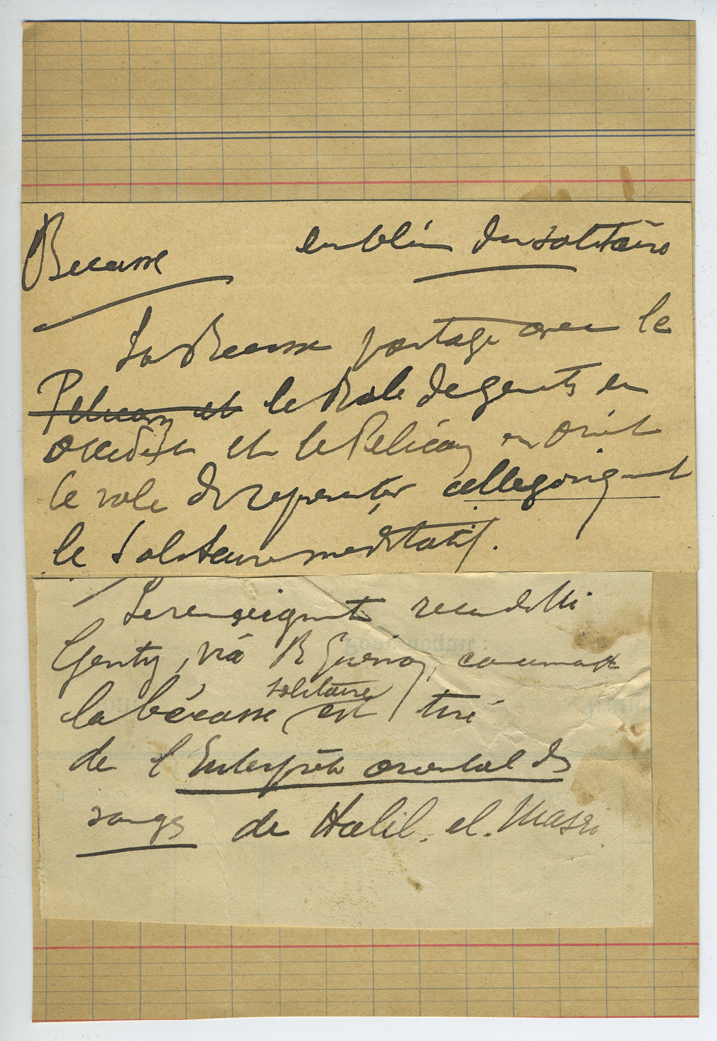 Becasse emblème du solitaire
La Becasse partage avec le
Pelican et le Role de gents en
occident et le Pelican en orient
le role de representer allegoriquement
le Solitaire meditatif.
Le renseignement recu de Mr
Genty, via R Guenon, concernant
la bécasse solitaire est tiré
de l'Interprète oriental des
songes de Halil. el. Masri.